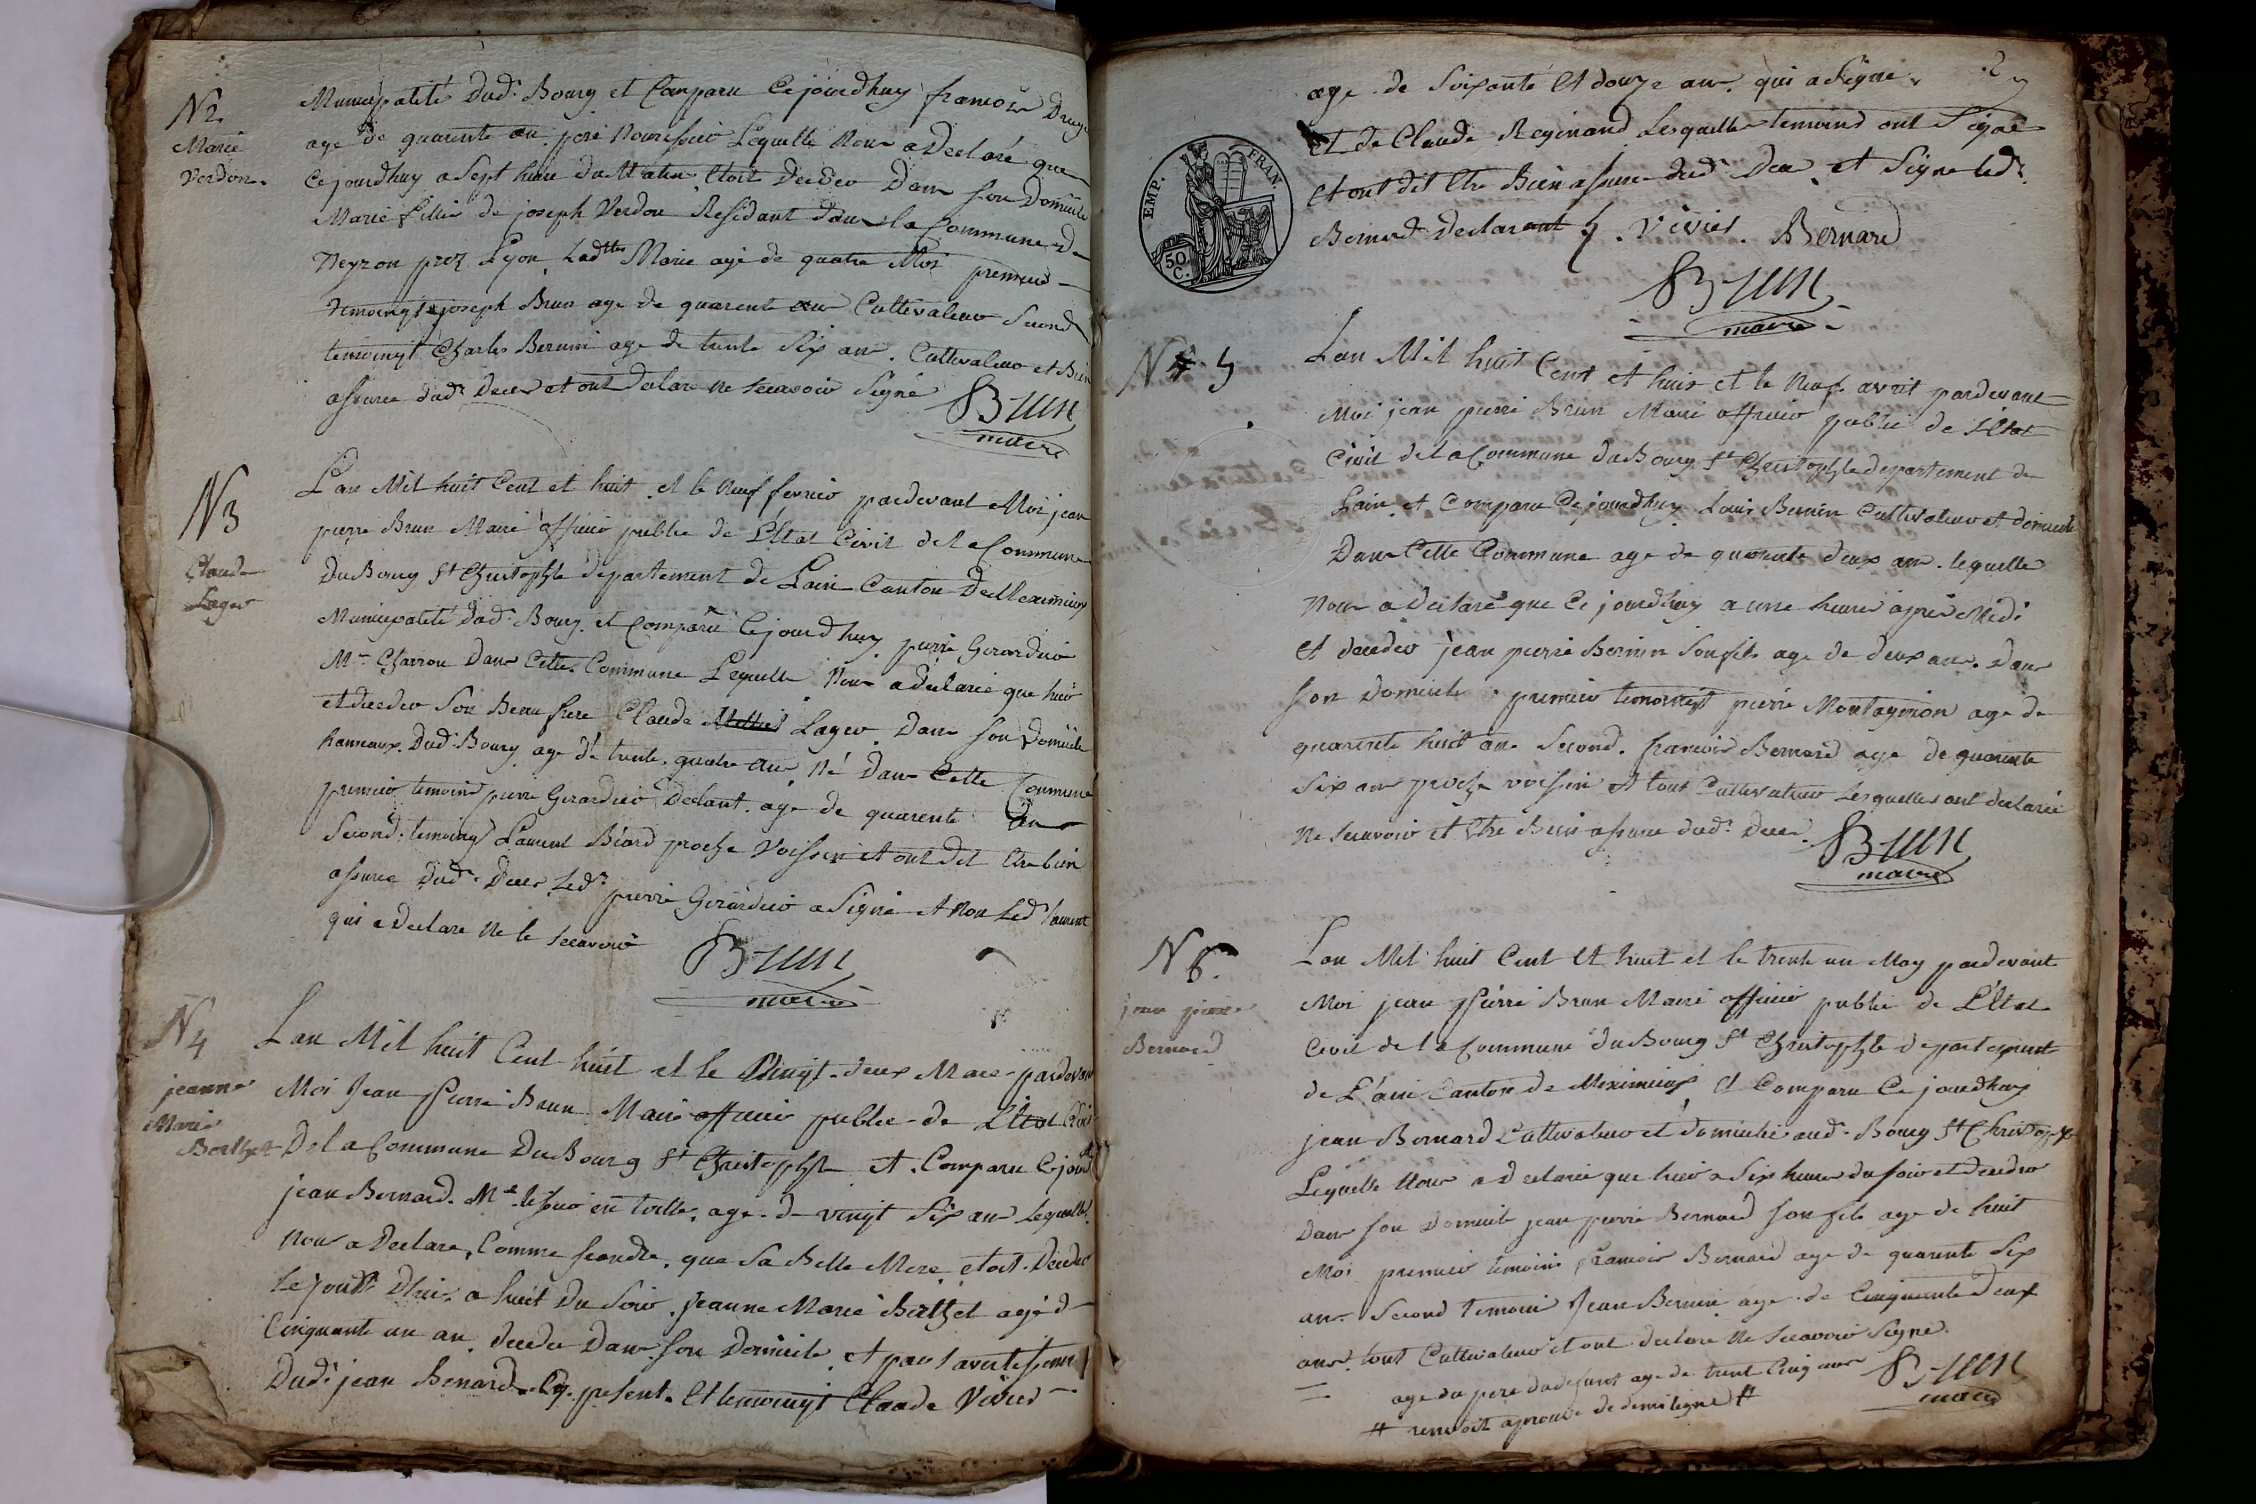 N2.
Marie
Verdon.
Municipalité dud. Bourg et Comparu Cejourdhuy francois
age de quarente an pere Nourissier Lequelle Nour a Declaré que
Cejourdhuy a Sept heure du Matin Etoit Decedeo Dans son Domicile
Marie fillie de joseph Verdon Residant dans la Commune de
Neyron prez Lyon Ladtte Marie agé de quatre Moi premier
temoingt joseph Brun age de quarente an Cultivateur Second
temoingt Charles Bernin age de trente Six an. Cultivateur et Bien
assurer dudt Deces et ont Declare ne Scavoir Signé
Brun
maire
N3
Claude
Lager
Lan Mil huit Cent et huit et le Neuf fevrier pardevant Moi jean
pierre Brun Maire officier public de L'Etat Civil de la Commune
Du Bourg St Christophle departement de Lain Canton De Meximieux
Municipalité Dud. Bourg et Comparu Cejourdhuy pierre Girardier
Mre Charron Dans Cette Commune Lequelle Nour a Declarie que hier
et decedeo Son Beau frere Claude Lager Dans son Domicile
hameaux Dud. Bourg age de trente quatre an Né Dans Cette Commune
premier temoins pierre Girardier Declant age de quarente an
Second temoing Laurent Béard proche Voissin et ont Dit Etre bien
assurer Dudt Deces Ledt pierre Girardier a Signé et Non Ledt laurent
qui a Declare Ne le Scavoir
Brun
maire
N4
jeanne
Marie
Berthet
Lan Mil huit Cent huit et le Vingt deux Mars pardevan
Moi Jean Pierre Brun Maire officier public de L'Etat Civil
De la Commune Du Bourg St Christophle et Comparu Cejourd
jean Bernard Md tissier en toille age de vingt Six an Lequelle
Nour a Declare, Comme gendre, que Sa Belle Mere etoit Decedeo
Le jourdt Dhui a huit Du Soir Jeanne Marie Berthet agé d
Cinquante un an decedee Dans son Domicile et par l'avertissement
Dudt jean Benard Cy present Et temoingt Claude Vivier
2
age de Soixante et douze an. qui a Signe
et de Claude Reginand Lesquelle temoins ont Signe
et ont dit Etre Bien assurer dudt Deces et Signe ledt
Bernard Declarant Vivier. Bernard
EMP. FRAN.
50 C.
Brun
maire
N 5
Lan Mil huit Cent et huit et le Neuf avril pardevant
Moi jean pierre Brun Maire officier public de L'Etat
Civil de la Commune du Bourg St Christophle departement de
Lain et Comparu Cejourdhuy Louis Bernin Cultivateur et domicile
Dans Cette Commune age de quarente deux an lequelle
Nour a declaré que Cejourdhuy a une heure après Midi
et decedeo jean pierre Bernin Son fils age de deux an. Dans
son Domicile premier temoingt pierre Montagnion age de
quarente huit an Second francois Bernard age de quarente
Six an proche voissin et tout Cultivateur Lesquelles ont declarie
Ne Scavoir et Etre Bien assurer dudt Deces
Brun
maire
N 6.
jean pierre
Bernard
Lan Mil huit Cent et huit et le trente un May pardevant
Moi jean Pierre Brun Maire officier public de L'Etat
Civil de la Commune du Bourg St Christophle departement
de L'ain Canton de Meximieux et Comparu Cejourdhuy
jean Bernard Cultivateur et domicilie audt Bourg St Christophle
Lequelle Nour a declarie que hier a Six heure du soir et decedeo
Dans son Domicile jean pierre Bernard son fils age de huit
Moi premier temoins francois Bernard age de quarente Six
an. Second temoin Jean Bernin age de Cinquente Deux
ans. tout Cultivateur et ont declare Ne Scavoir Signe.
age du pere du defunt age de trent Cinq ans
renvoit aprouve de demi ligne
Brun
maire